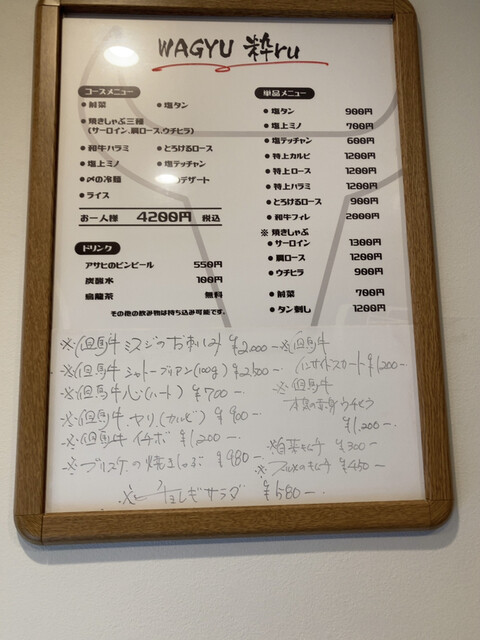 WAGYU 粋ru
コースメニュー
● 前菜 ● 塩タン
● 焼きしゃぶ三種
(サーロイン、肩ロース、ウチヒラ)
● 和牛ハラミ ● とろけるロース
● 塩上ミノ ● 塩テッチャン
● 〆の冷麺 デザート
● ライス
お一人様 4200円 税込
ドリンク
アサヒのビンビール 550円
炭酸水 100円
烏龍茶 無料
その他の飲み物は持ち込み可能です。
単品メニュー
● 塩タン 900円
● 塩上ミノ 700円
● 塩テッチャン 600円
● 特上カルビ 1200円
● 特上ロース 1200円
● 特上ハラミ 1200円
● とろけるロース 900円
● 和牛フィレ 2000円
※ 焼きしゃぶ
● サーロイン 1300円
● 肩ロース 1200円
● ウチヒラ 900円
● 前菜 700円
● タン刺し 1200円
※但馬牛ミスジのお刺しみ ¥2,000ー
※但馬牛 シャトーブリアン(100g) ¥2,500ー
※但馬牛 心(ハート) ¥700ー
※但馬牛 ヤリ(カルビ) ¥900ー
※但馬牛 イチボ ¥1,200ー
※ブリスケの焼きしゃぶ ¥980ー
※チョレギサラダ ¥580ー
※但馬牛
インサイドスカート ¥1,200ー
※但馬牛
¥1,200ー
※白菜キムチ ¥300ー
※ キムチ ¥450ー